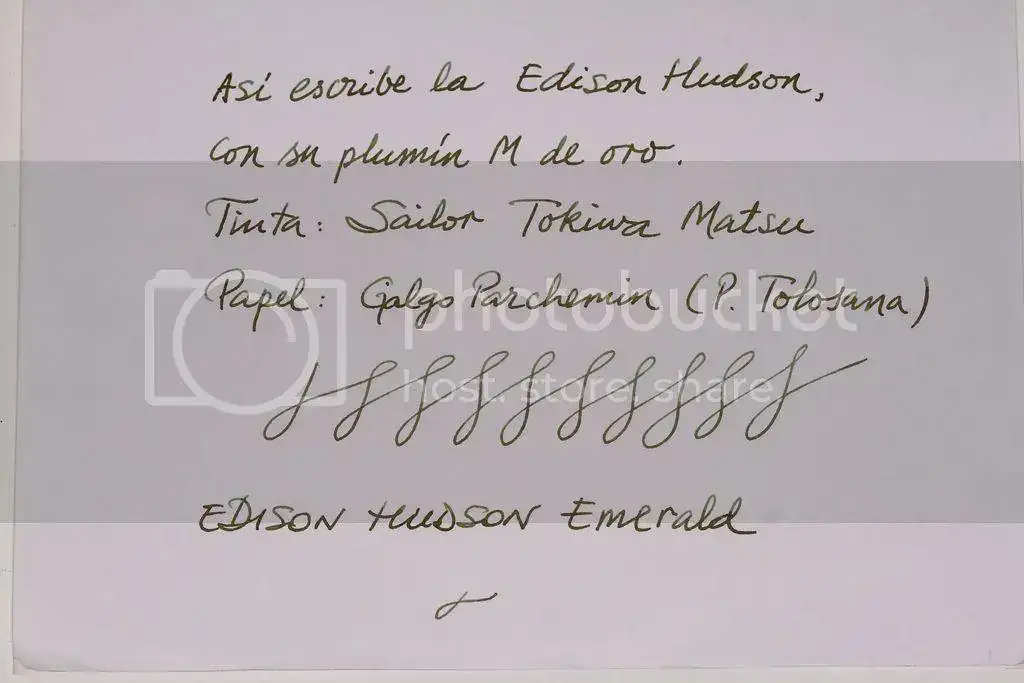 Así escribe la Edison Hudson,
con su plumín M de oro.
Tinta: Sailor Tokiwa Matsu
Papel: Galgo Parchemin (P. Tolosana)
photobucket
host. store. share
EDISON HUDSON Emerald